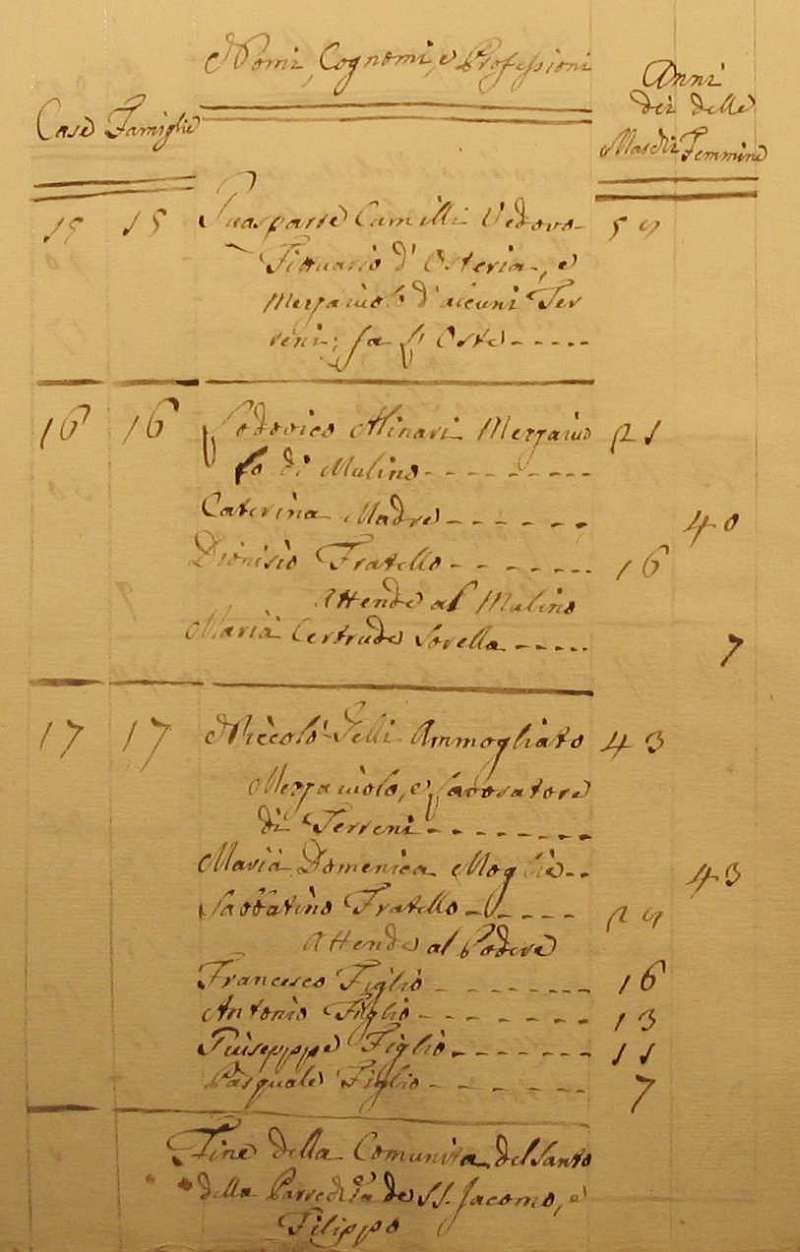 Nomi, Cognomi, e Professioni
Anni
dei delle
Case Famiglie
Maschi Femmine
15 15 Guasparre Camilli Vedovo 59
Fittuario d' Osteria, e
Mezzaiuolo d' alcuni Ter
reni; fa l' Oste
16 16 Lodovico Minari Mezzaiuo 21
lo di Mulino
Caterina Madre 40
Dionisio Fratello 16
Attende al Mulino
Maria Certrude Sorella 7
17 17 Niccolò Felli Ammogliato 43
Mezzaiuolo, e Lavoratore
di Terreni
Maria Domenica Moglie 43
Sabbatino Fratello 29
Attende al Podere
Francesco Figlio 16
Antonio Figlio 13
Giuseppe Figlio 11
Pasquale Figlio 7
Fine della Comunita del Santo
della Parrochia de SS. Jacomo, e
Filippo